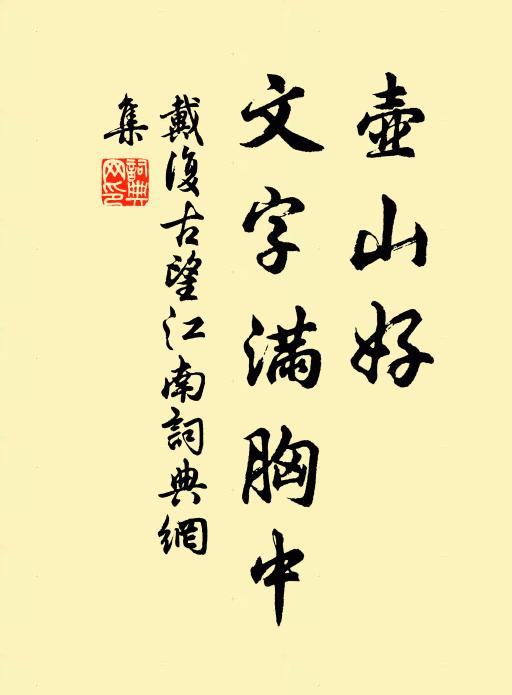 壺山好
文字滿胸中
戴復古望江南詞典網
集
詞典網印